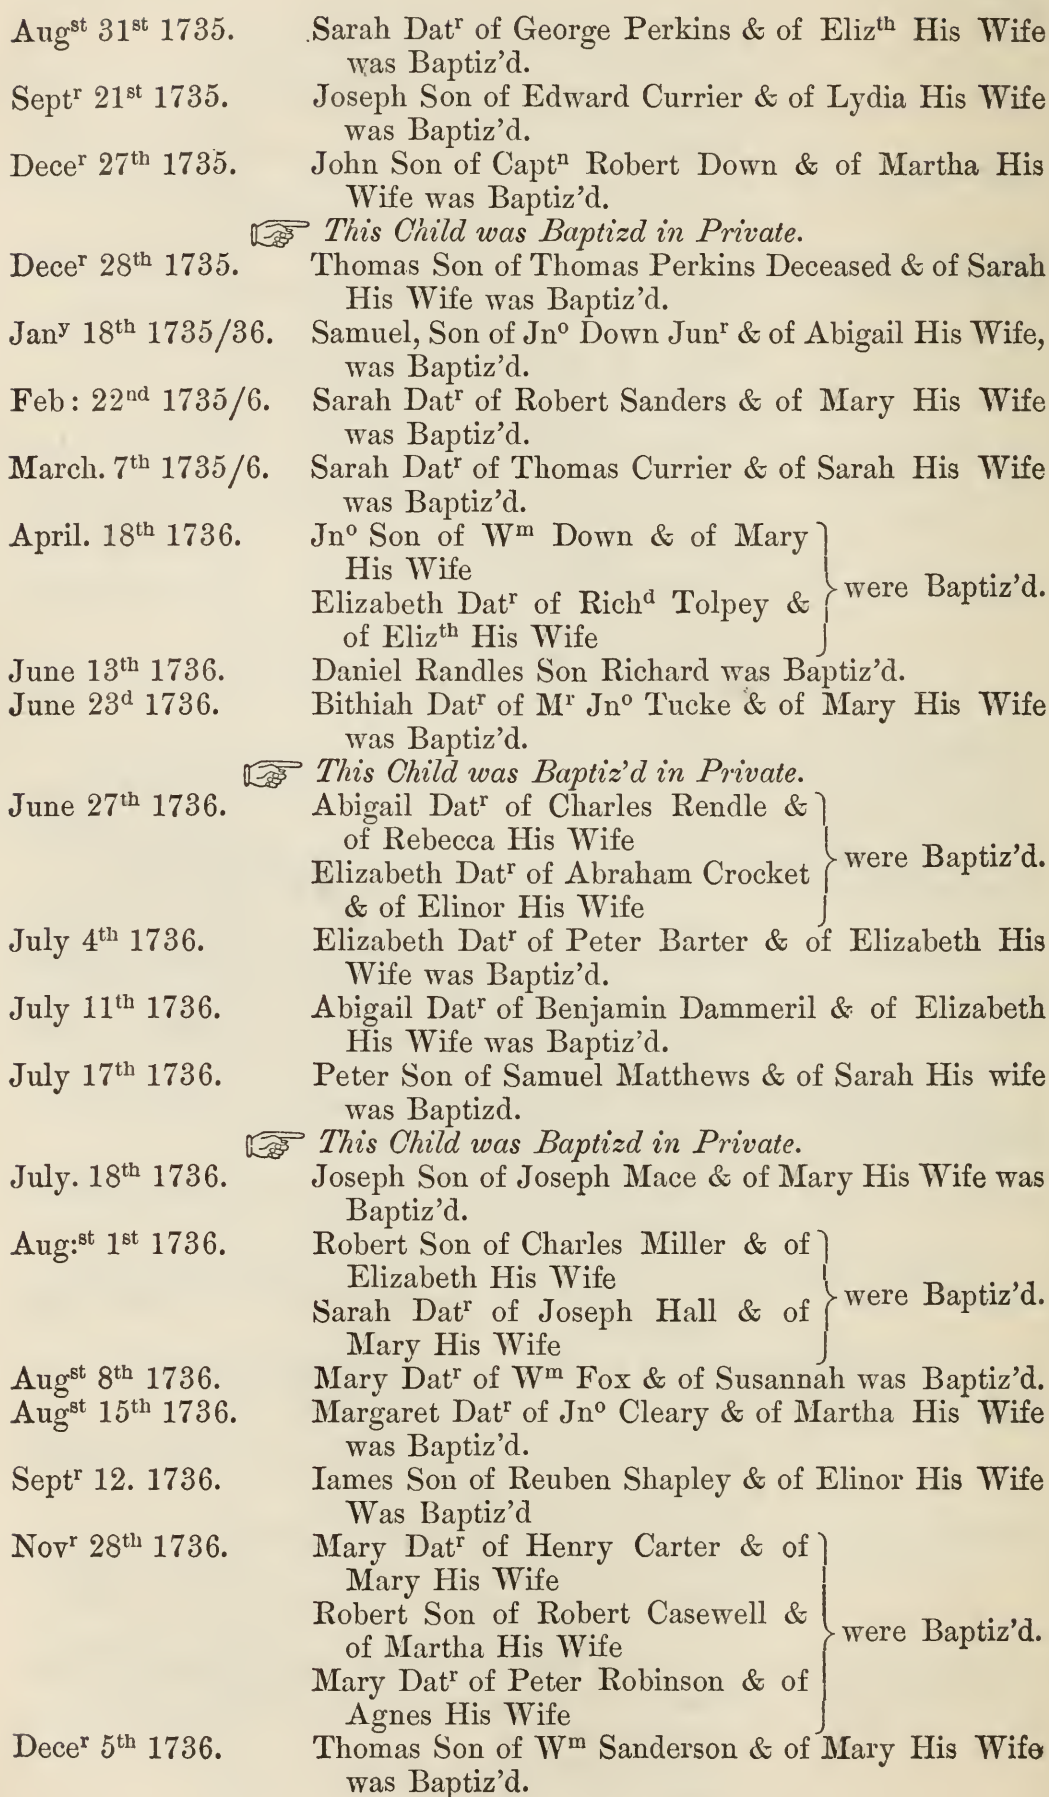 Augst 31st 1735. Sarah Datr of George Perkins & of Elizth His Wife
was Baptiz'd.
Septr 21st 1735. Joseph Son of Edward Currier & of Lydia His Wife
was Baptiz'd.
Decer 27th 1735. John Son of Captn Robert Down & of Martha His
Wife was Baptiz'd.
☞ This Child was Baptizd in Private.
Decer 28th 1735. Thomas Son of Thomas Perkins Deceased & of Sarah
His Wife was Baptiz'd.
Jany 18th 1735/36. Samuel, Son of Jno Down Junr & of Abigail His Wife,
was Baptiz'd.
Feb: 22nd 1735/6. Sarah Datr of Robert Sanders & of Mary His Wife
was Baptiz'd.
March. 7th 1735/6. Sarah Datr of Thomas Currier & of Sarah His Wife
was Baptiz'd.
April. 18th 1736. Jno Son of Wm Down & of Mary
His Wife
were Baptiz'd.
Elizabeth Datr of Richd Tolpey &
of Elizth His Wife
June 13th 1736. Daniel Randles Son Richard was Baptiz'd.
June 23d 1736. Bithiah Datr of Mr Jno Tucke & of Mary His Wife
was Baptiz'd.
☞ This Child was Baptiz'd in Private.
June 27th 1736. Abigail Datr of Charles Rendle &
of Rebecca His Wife
were Baptiz'd.
Elizabeth Datr of Abraham Crocket
& of Elinor His Wife
July 4th 1736. Elizabeth Datr of Peter Barter & of Elizabeth His
Wife was Baptiz'd.
July 11th 1736. Abigail Datr of Benjamin Dammeril & of Elizabeth
His Wife was Baptiz'd.
July 17th 1736. Peter Son of Samuel Matthews & of Sarah His wife
was Baptizd.
☞ This Child was Baptizd in Private.
July. 18th 1736. Joseph Son of Joseph Mace & of Mary His Wife was
Baptiz'd.
Aug:st 1st 1736. Robert Son of Charles Miller & of
Elizabeth His Wife
were Baptiz'd.
Sarah Datr of Joseph Hall & of
Mary His Wife
Augst 8th 1736. Mary Datr of Wm Fox & of Susannah was Baptiz'd.
Augst 15th 1736. Margaret Datr of Jno Cleary & of Martha His Wife
was Baptiz'd.
Septr 12. 1736. Iames Son of Reuben Shapley & of Elinor His Wife
Was Baptiz'd
Novr 28th 1736. Mary Datr of Henry Carter & of
Mary His Wife
Robert Son of Robert Casewell &
were Baptiz'd.
of Martha His Wife
Mary Datr of Peter Robinson & of
Agnes His Wife
Decer 5th 1736. Thomas Son of Wm Sanderson & of Mary His Wife
was Baptiz'd.